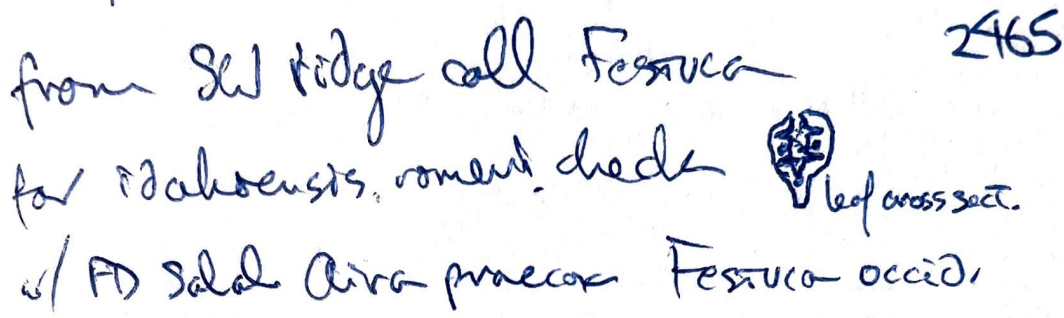 2465
from SW ridge call Festuca
for idahoensis, roemeri. check
leaf cross sect.
w/ FD Salal Aira praecox Festuca occid.